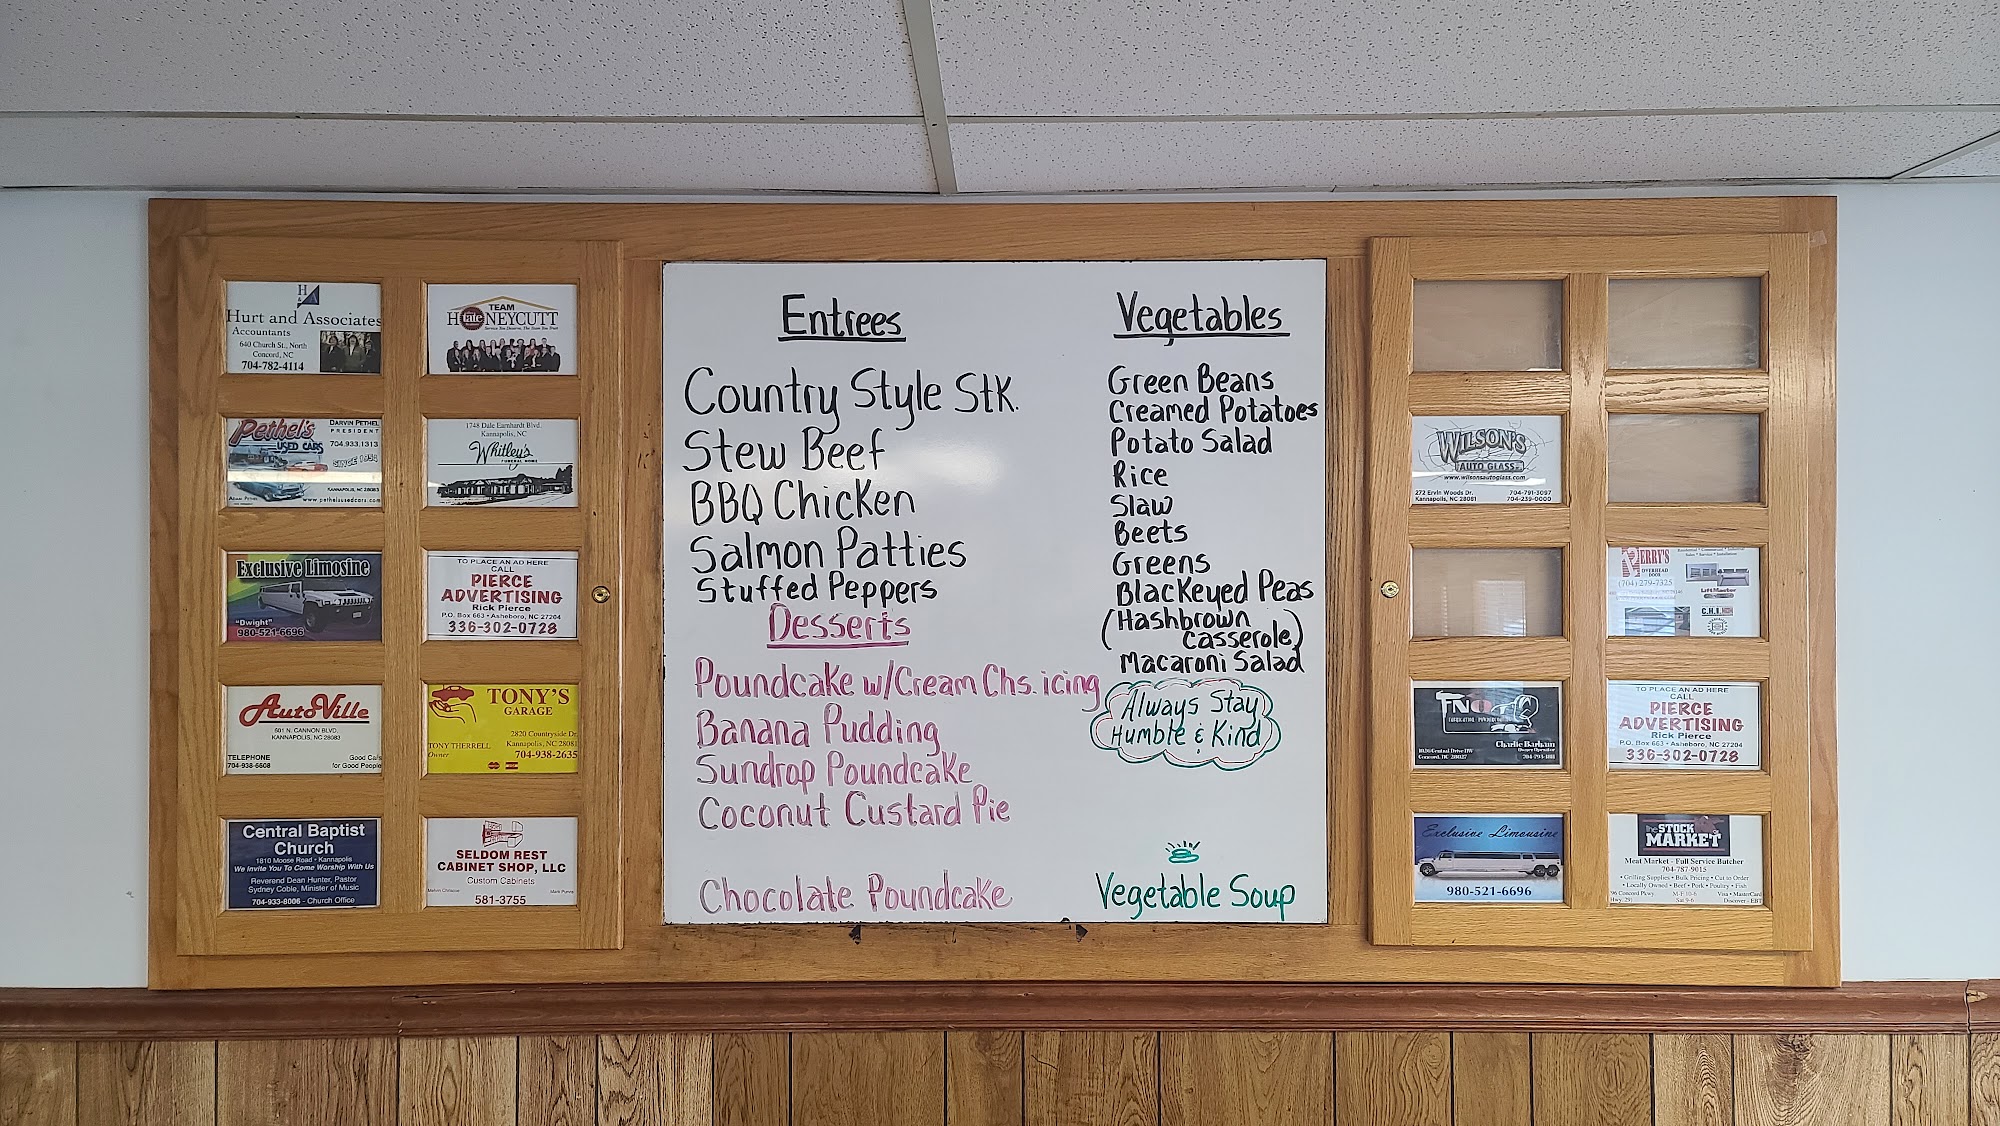 H
& A
Hurt and Associates
Accountants
640 Church St., North
Concord, NC
704-782-4114
TEAM
HONEYCUTT
tate
Pethel's
USED CARS
DARVIN PETHEL
PRESIDENT
704.933.1313
SINCE 1954
KANNAPOLIS, NC 28083
www.pethelsusedcars.com
1748 Dale Earnhardt Blvd.
Kannapolis, NC
Whitley's
FUNERAL HOME
Exclusive Limosine
"Dwight"
980-521-6696
TO PLACE AN AD HERE
CALL
PIERCE
ADVERTISING
Rick Pierce
P.O. Box 663 • Asheboro, NC 27204
336-302-0728
AutoVille
501 N. CANNON BLVD.
KANNAPOLIS, NC 28083
TELEPHONE
704-938-6608
Good Cars
for Good People
TONY'S
GARAGE
TONY THERRELL
Owner
2820 Countryside Dr.
Kannapolis, NC 28081
704-938-2635
Central Baptist
Church
1810 Moose Road • Kannapolis
We Invite You To Come Worship With Us
Reverend Dean Hunter, Pastor
Sydney Coble, Minister of Music
704-933-8006 - Church Office
SELDOM REST
CABINET SHOP, LLC
Custom Cabinets
581-3755
Entrees
Country Style Stk.
Stew Beef
BBQ Chicken
Salmon Patties
Stuffed Peppers
Desserts
Poundcake w/Cream Chs. icing
Banana Pudding
Sundrop Poundcake
Coconut Custard Pie
Chocolate Poundcake
Vegetables
Green Beans
Creamed Potatoes
Potato Salad
Rice
Slaw
Beets
Greens
Blackeyed Peas
(Hashbrown
Casserole)
Macaroni Salad
Always Stay
Humble & Kind
Vegetable Soup
WILSON'S
AUTO GLASS
www.wilsonsautoglass.com
272 Ervin Woods Dr.
Kannapolis, NC 28081
704-791-3097
704-239-0000
OVERHEAD
DOOR
(704) 279-7325
LiftMaster
C.H.I.
Charlie Barham
Concord, NC 28027
TO PLACE AN AD HERE
CALL
PIERCE
ADVERTISING
Rick Pierce
P.O. Box 663 • Asheboro, NC 27204
336-302-0728
Exclusive Limousine
980-521-6696
The STOCK
MARKET
Meat Market - Full Service Butcher
704-787-9015
• Grilling Supplies • Bulk Pricing • Cut to Order
• Locally Owned • Beef • Pork • Poultry • Fish
96 Concord Pkwy
Hwy. 29
M-F 10-6
Sat 9-6
Visa • MasterCard
Discover - EBT